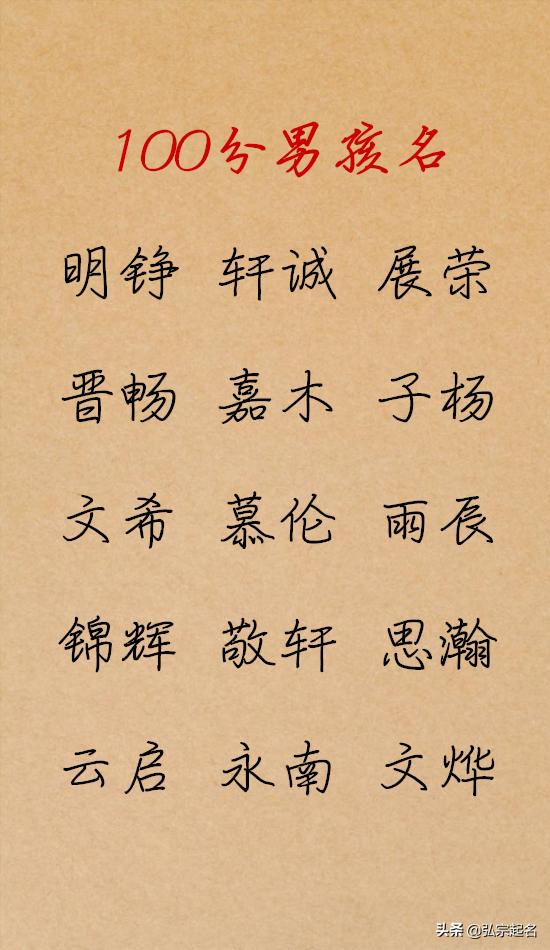 100分男孩名
明铮 轩诚 展荣
晋畅 嘉木 子杨
文希 慕伦 雨辰
锦辉 敬轩 思瀚
云启 永南 文烨
头条 @弘宗起名